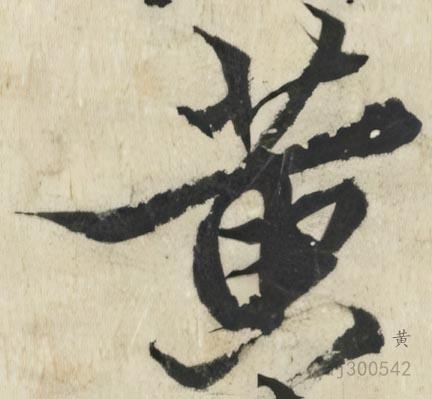 黄
黄
j300542